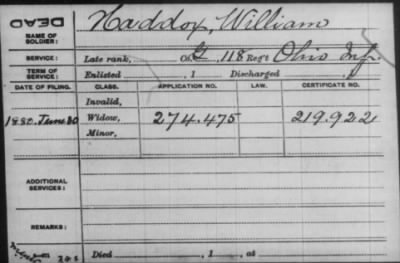 DEAD
NAME OF SOLDIER: Haddox, William
SERVICE: Late rank, Co. G, 118 Reg't Ohio Inf.
TERM OF SERVICE: Enlisted , 1 Discharged , 1
DATE OF FILING. CLASS. APPLICATION NO. LAW. CERTIFICATE NO.
Invalid,
1880, June 30 Widow, 274.475 219.922
Minor,
ADDITIONAL SERVICES:
REMARKS:
Died , 1 , at